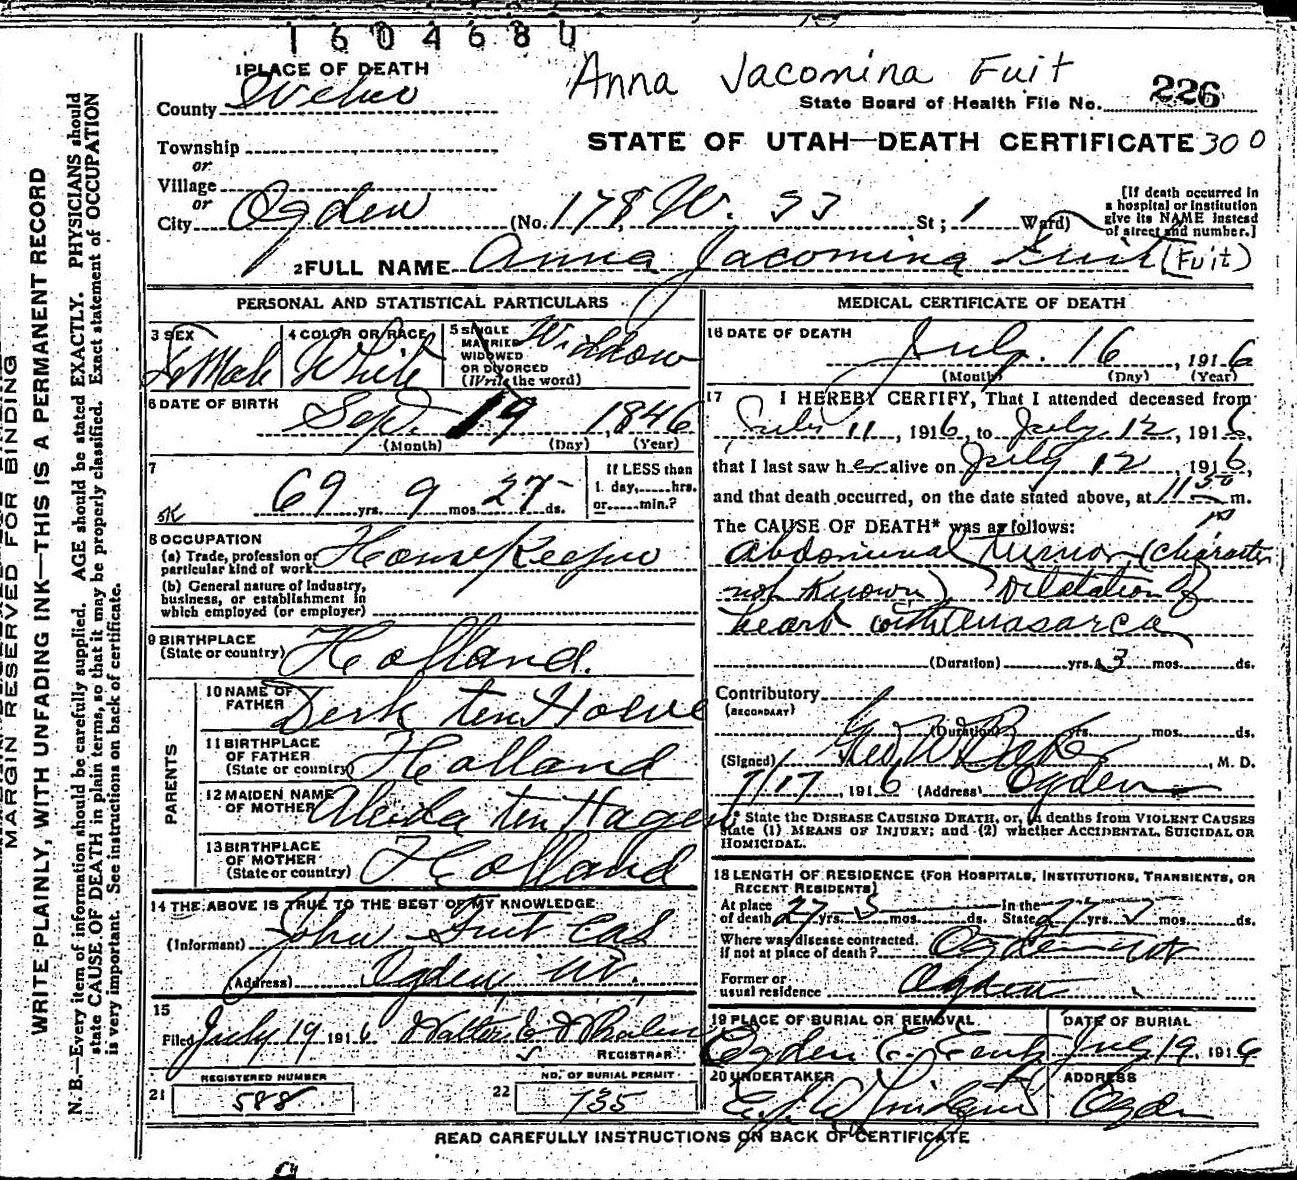 1604680
Anna Jacomina Fuit
1 PLACE OF DEATH
County Weber
State Board of Health File No. 226
STATE OF UTAH—DEATH CERTIFICATE 300
Township
or
Village
or
City Ogden (No. 178 W. 33 St; 1 Ward)
[If death occurred in
a hospital or institution
give its NAME instead
of street and number.]
2 FULL NAME Anna Jacomina Fuit (Fuit)
PERSONAL AND STATISTICAL PARTICULARS
3 SEX
Female
4 COLOR OR RACE
White
5 SINGLE
MARRIED
WIDOWED
OR DIVORCED
(Write the word)
Widdow
6 DATE OF BIRTH
Sep. 19, 1846
(Month) (Day) (Year)
7
69 yrs. 9 mos. 27 ds.
If LESS than
1 day,......hrs.
or......min.?
8 OCCUPATION
(a) Trade, profession or
particular kind of work House Keeper
(b) General nature of industry,
business, or establishment in
which employed (or employer)
9 BIRTHPLACE
(State or country) Holland.
PARENTS
10 NAME OF
FATHER Derk ten Hoeve
11 BIRTHPLACE
OF FATHER
(State or country) Holland
12 MAIDEN NAME
OF MOTHER Aleida ten Hagen
13 BIRTHPLACE
OF MOTHER
(State or country) Holland
14 THE ABOVE IS TRUE TO THE BEST OF MY KNOWLEDGE
(Informant) John Fuit
(Address) Ogden Ut.
15
Filed July 19 1916 Walter E Whalen
REGISTRAR
REGISTERED NUMBER
21 588
NO. OF BURIAL PERMIT
22 735
MEDICAL CERTIFICATE OF DEATH
16 DATE OF DEATH
July. 16, 1916
(Month) (Day) (Year)
17 I HEREBY CERTIFY, That I attended deceased from
July 11, 1916, to July 12, 1916,
that I last saw her alive on July 12, 1916,
and that death occurred, on the date stated above, at 11 30 m.
The CAUSE OF DEATH* was as follows:
Abdominal tumor (character
not known) Dilatation of
heart with anasarca
(Duration) yrs. 3 mos. ds.
Contributory
(SECONDARY)
(Duration) yrs. mos. ds.
(Signed) Geo W Baker, M. D.
7/17, 1916 (Address) Ogden
* State the DISEASE CAUSING DEATH, or, in deaths from VIOLENT CAUSES
state (1) MEANS OF INJURY; and (2) whether ACCIDENTAL, SUICIDAL OR
HOMICIDAL.
18 LENGTH OF RESIDENCE (FOR HOSPITALS, INSTITUTIONS, TRANSIENTS, OR
RECENT RESIDENTS)
At place
of death 27 yrs. mos. ds. In the
State 27 yrs. mos. ds.
Where was disease contracted,
if not at place of death? Ogden Ut
Former or
usual residence Ogden
19 PLACE OF BURIAL OR REMOVAL
Ogden C. Cent
DATE OF BURIAL
July 19, 1916
20 UNDERTAKER
ADDRESS
Ogden
READ CAREFULLY INSTRUCTIONS ON BACK OF CERTIFICATE
MARGIN RESERVED FOR BINDING
WRITE PLAINLY, WITH UNFADING INK—THIS IS A PERMANENT RECORD
N. B.—Every item of information should be carefully supplied. AGE should be stated EXACTLY. PHYSICIANS should
state CAUSE OF DEATH in plain terms, so that it may be properly classified. Exact statement of OCCUPATION
is very important. See instructions on back of certificate.